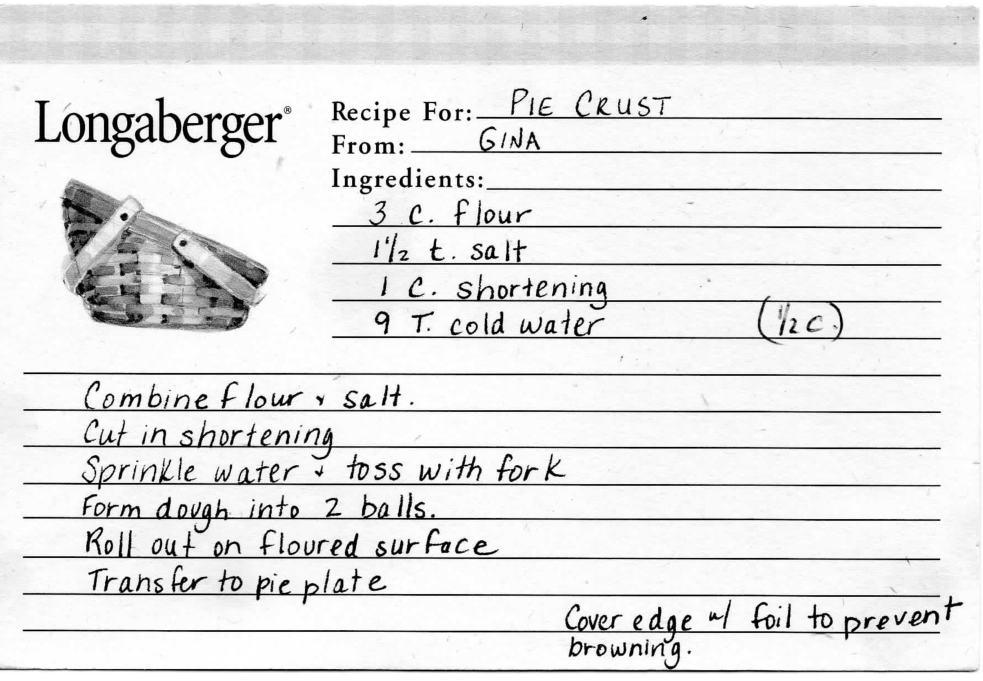 Longaberger®
Recipe For: PIE CRUST
From: GINA
Ingredients:
3 c. flour
1 1/2 t. salt
1 C. shortening
9 T. cold water (1/2 c.)
Combine flour & salt.
Cut in shortening
Sprinkle water & toss with fork
Form dough into 2 balls.
Roll out on floured surface
Transfer to pie plate
Cover edge w/ foil to prevent
browning.